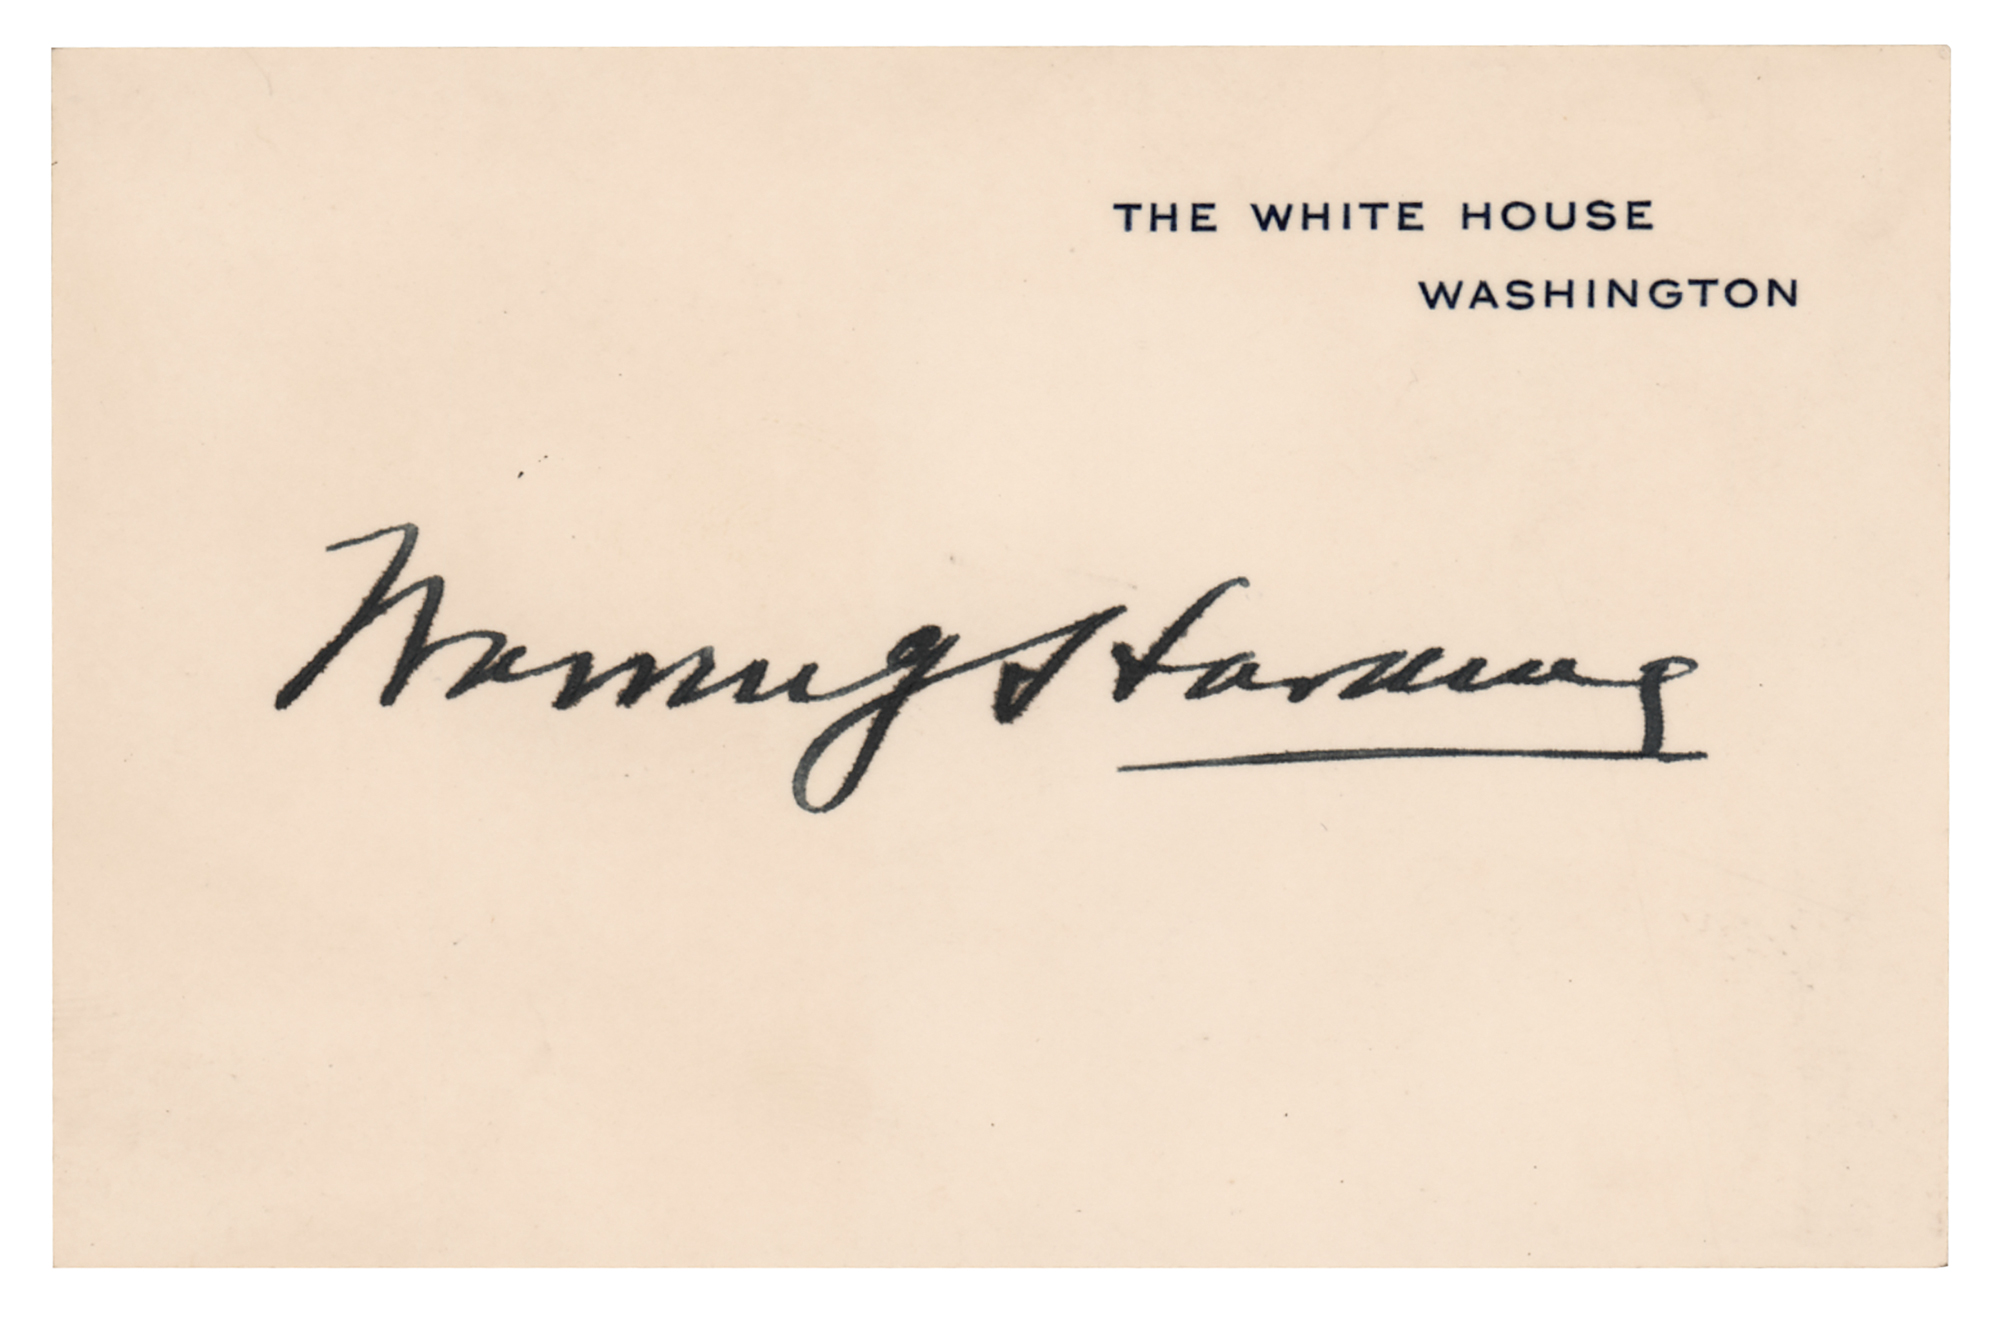 THE WHITE HOUSE
WASHINGTON
Warren G Harding